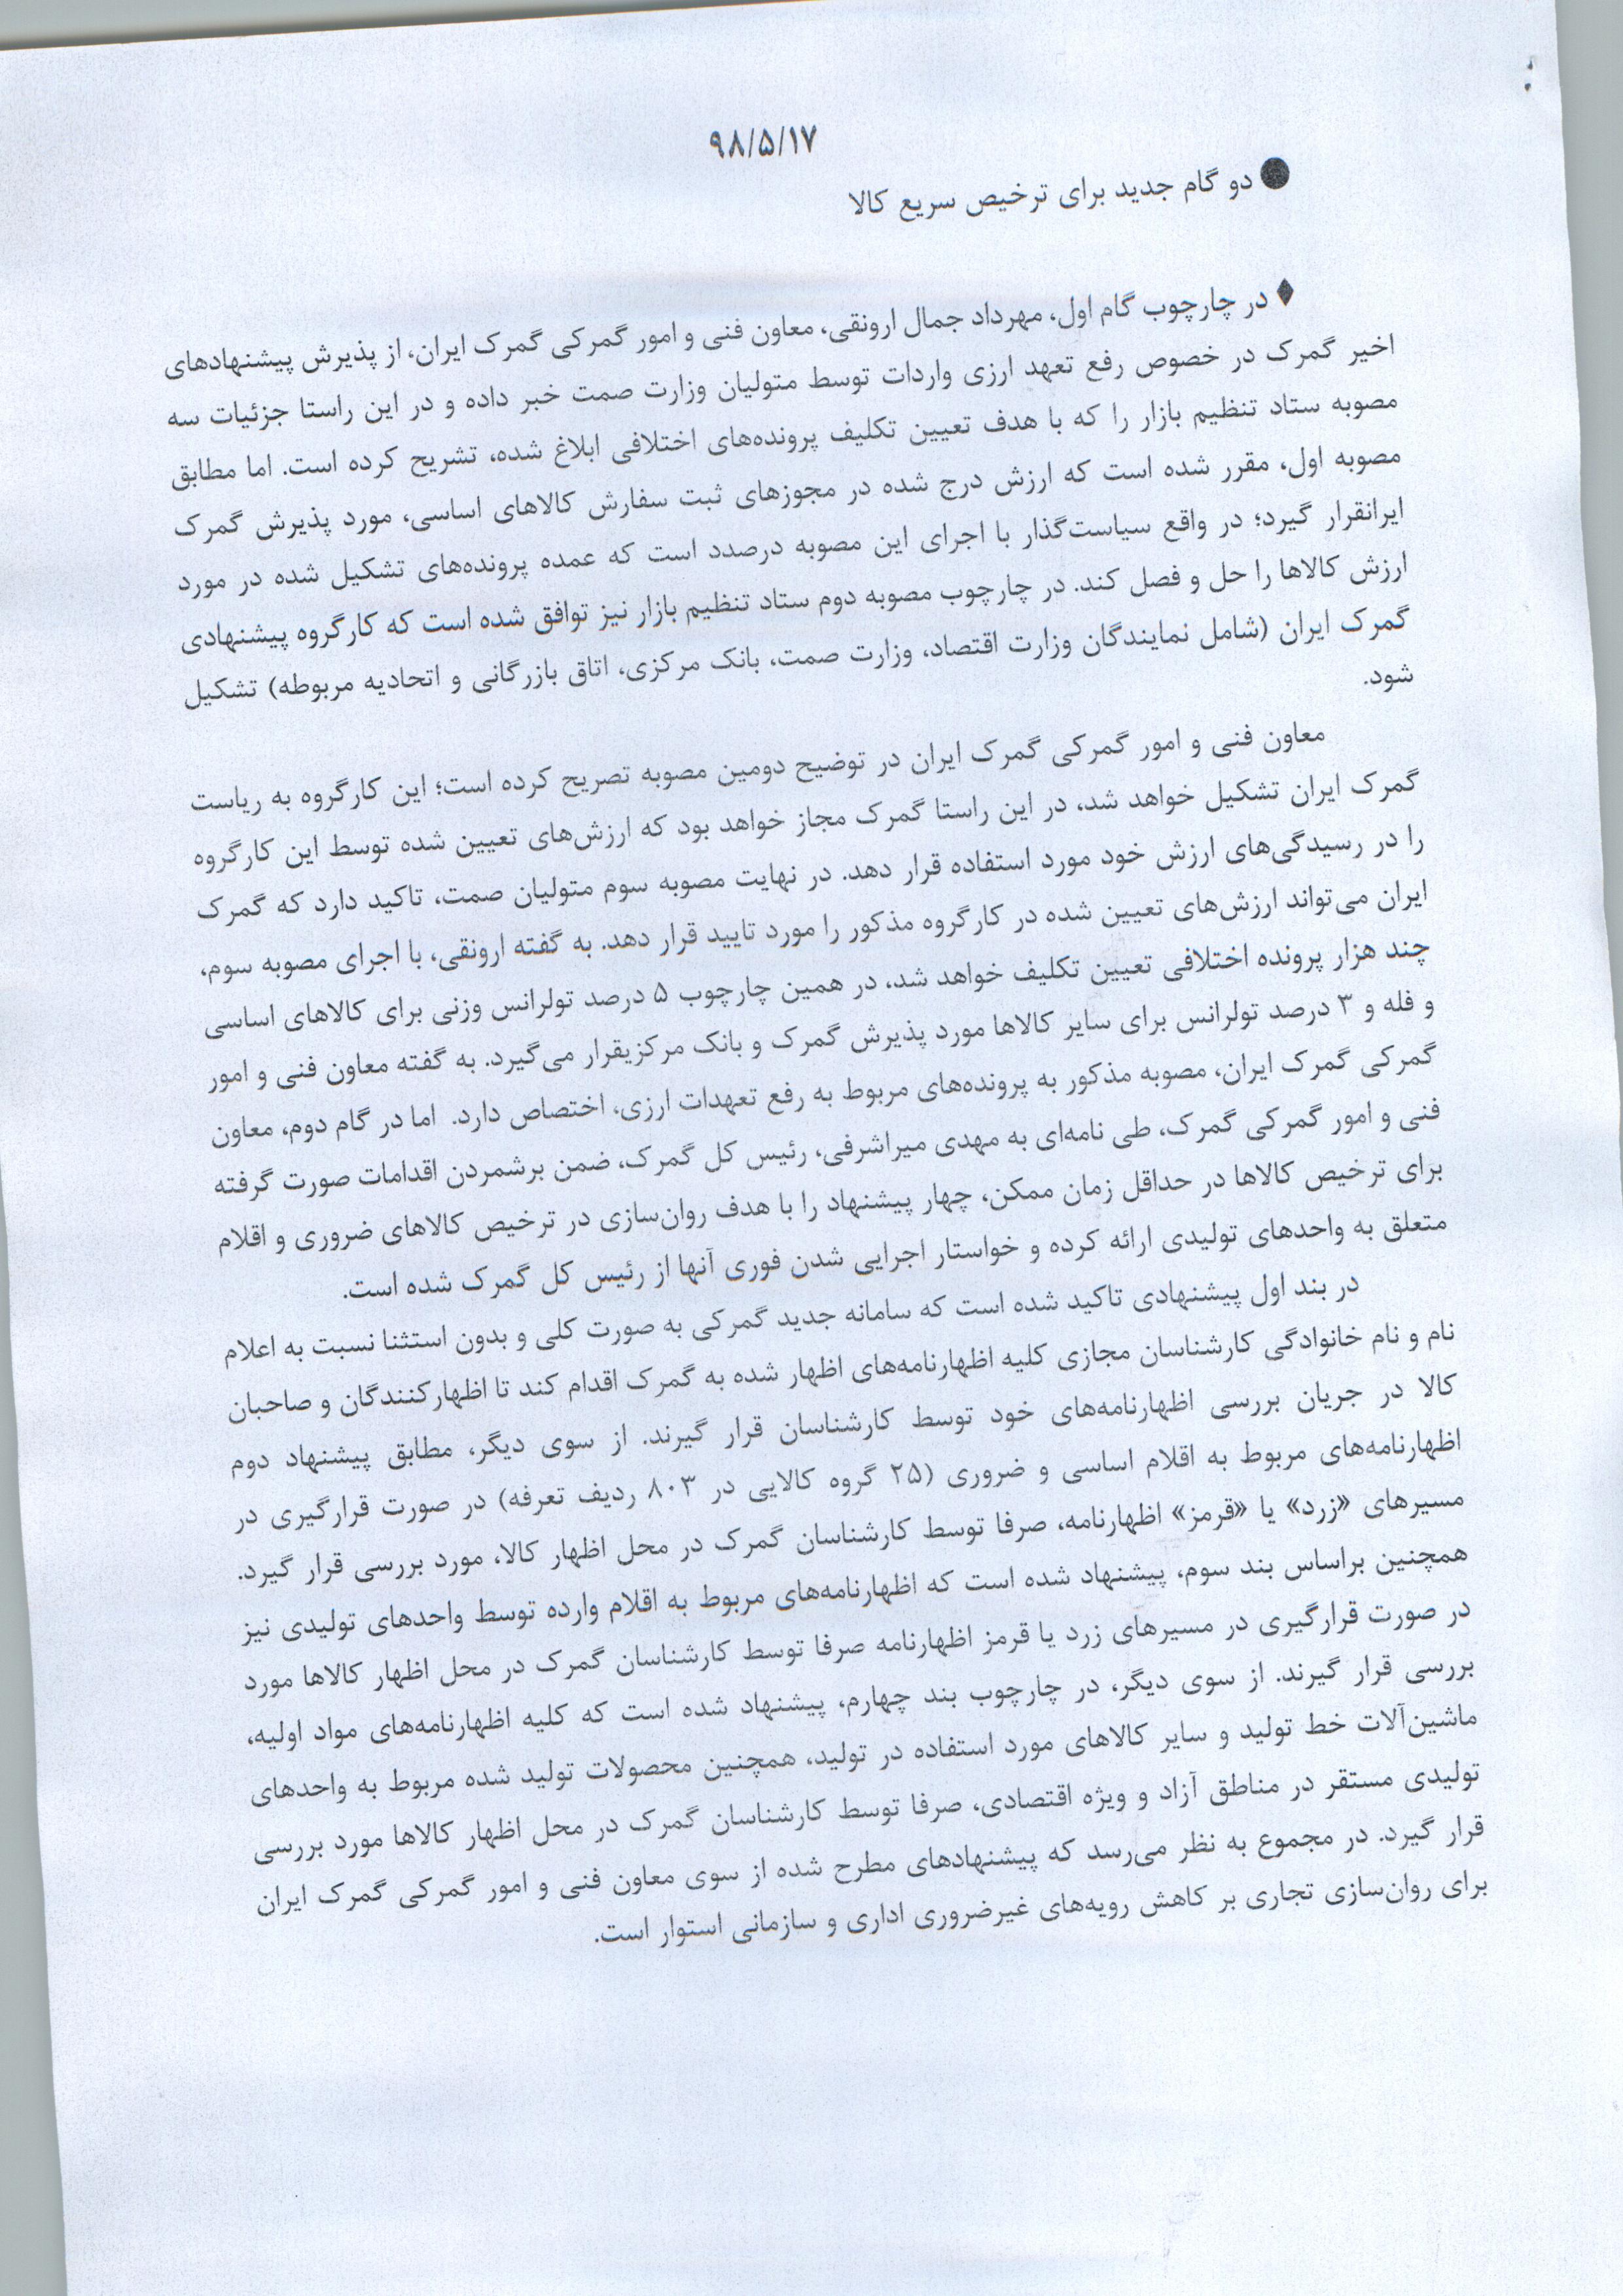 ۹۸/۵/۱۷
● دو گام جدید برای ترخیص سریع کالا
♦ در چارچوب گام اول، مهرداد جمال ارونقی، معاون فنی و امور گمرکی گمرک ایران، از پذیرش پیشنهادهای
اخیر گمرک در خصوص رفع تعهد ارزی واردات توسط متولیان وزارت صمت خبر داده و در این راستا جزئیات سه
مصوبه ستاد تنظیم بازار را که با هدف تعیین تکلیف پرونده‌های اختلافی ابلاغ شده، تشریح کرده است. اما مطابق
مصوبه اول، مقرر شده است که ارزش درج شده در مجوزهای ثبت سفارش کالاهای اساسی، مورد پذیرش گمرک
ایرانقرار گیرد؛ در واقع سیاست‌گذار با اجرای این مصوبه درصدد است که عمده پرونده‌های تشکیل شده در مورد
ارزش کالاها را حل و فصل کند. در چارچوب مصوبه دوم ستاد تنظیم بازار نیز توافق شده است که کارگروه پیشنهادی
گمرک ایران (شامل نمایندگان وزارت اقتصاد، وزارت صمت، بانک مرکزی، اتاق بازرگانی و اتحادیه مربوطه) تشکیل
شود.
معاون فنی و امور گمرکی گمرک ایران در توضیح دومین مصوبه تصریح کرده است؛ این کارگروه به ریاست
گمرک ایران تشکیل خواهد شد، در این راستا گمرک مجاز خواهد بود که ارزش‌های تعیین شده توسط این کارگروه
را در رسیدگی‌های ارزش خود مورد استفاده قرار دهد. در نهایت مصوبه سوم متولیان صمت، تاکید دارد که گمرک
ایران می‌تواند ارزش‌های تعیین شده در کارگروه مذکور را مورد تایید قرار دهد. به گفته ارونقی، با اجرای مصوبه سوم،
چند هزار پرونده اختلافی تعیین تکلیف خواهد شد، در همین چارچوب ۵ درصد تولرانس وزنی برای کالاهای اساسی
و فله و ۳ درصد تولرانس برای سایر کالاها مورد پذیرش گمرک و بانک مرکزیقرار می‌گیرد. به گفته معاون فنی و امور
گمرکی گمرک ایران، مصوبه مذکور به پرونده‌های مربوط به رفع تعهدات ارزی، اختصاص دارد. اما در گام دوم، معاون
فنی و امور گمرکی گمرک، طی نامه‌ای به مهدی میراشرفی، رئیس کل گمرک، ضمن برشمردن اقدامات صورت گرفته
برای ترخیص کالاها در حداقل زمان ممکن، چهار پیشنهاد را با هدف روان‌سازی در ترخیص کالاهای ضروری و اقلام
متعلق به واحدهای تولیدی ارائه کرده و خواستار اجرایی شدن فوری آنها از رئیس کل گمرک شده است.
در بند اول پیشنهادی تاکید شده است که سامانه جدید گمرکی به صورت کلی و بدون استثنا نسبت به اعلام
نام و نام خانوادگی کارشناسان مجازی کلیه اظهارنامه‌های اظهار شده به گمرک اقدام کند تا اظهارکنندگان و صاحبان
کالا در جریان بررسی اظهارنامه‌های خود توسط کارشناسان قرار گیرند. از سوی دیگر، مطابق پیشنهاد دوم
اظهارنامه‌های مربوط به اقلام اساسی و ضروری (۲۵ گروه کالایی در ۸۰۳ ردیف تعرفه) در صورت قرارگیری در
مسیرهای «زرد» یا «قرمز» اظهارنامه، صرفا توسط کارشناسان گمرک در محل اظهار کالا، مورد بررسی قرار گیرد.
همچنین براساس بند سوم، پیشنهاد شده است که اظهارنامه‌های مربوط به اقلام وارده توسط واحدهای تولیدی نیز
در صورت قرارگیری در مسیرهای زرد یا قرمز اظهارنامه صرفا توسط کارشناسان گمرک در محل اظهار کالاها مورد
بررسی قرار گیرند. از سوی دیگر، در چارچوب بند چهارم، پیشنهاد شده است که کلیه اظهارنامه‌های مواد اولیه،
ماشین‌آلات خط تولید و سایر کالاهای مورد استفاده در تولید، همچنین محصولات تولید شده مربوط به واحدهای
تولیدی مستقر در مناطق آزاد و ویژه اقتصادی، صرفا توسط کارشناسان گمرک در محل اظهار کالاها مورد بررسی
قرار گیرد. در مجموع به نظر می‌رسد که پیشنهادهای مطرح شده از سوی معاون فنی و امور گمرکی گمرک ایران
برای روان‌سازی تجاری بر کاهش رویه‌های غیرضروری اداری و سازمانی استوار است.